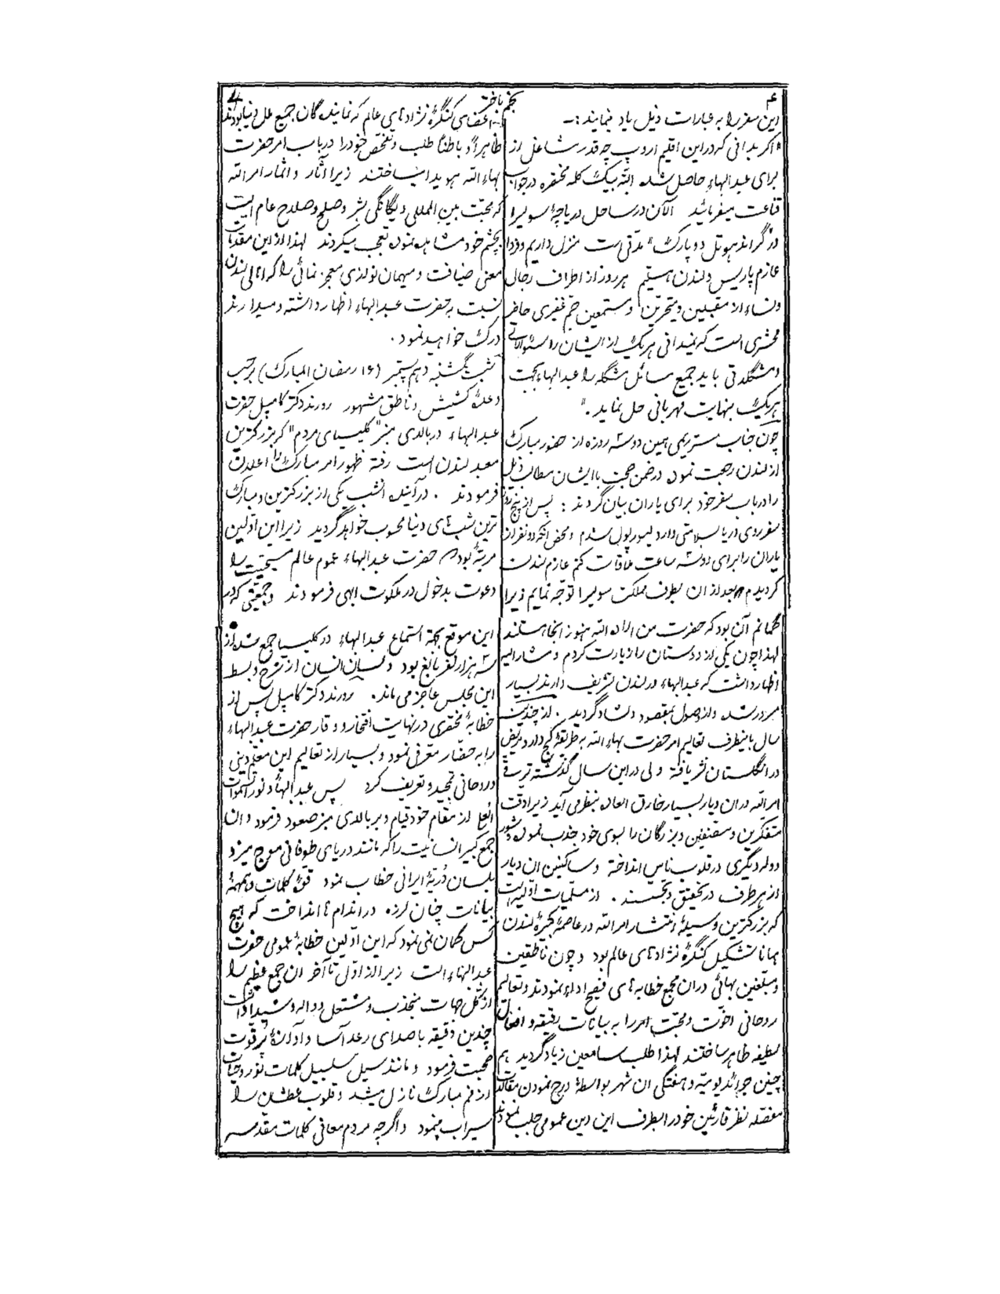 ۴
نجم باختر
این سفر را به عبارات ذیل یاد نمایند :ـ
"اگر بدانی که در این اقلیم اروپ چه قدر مشاغل از
برای عبدالبهاء حاصل شده البته بیک کلمه مختصره در جواب
قناعت میفرمائید الآن در ساحل دریاچهٔ سویسرا
در گراند هوتل دو پارک مدتی است منزل داریم و فردا
عازم پاریس و لندن هستیم هر روز از اطراف رجال
و نساء از مقبلین و متحرین و مستمعین جم غفیری حاضر
محشری است که نمیدانی هر یک از ایشان را سئوالاتی
و مشکلاتی باید جمیع مسائل مشکله را عبدالبهاء بجهت
هر یک بنهایت مهربانی حل نماید ."
چون جناب مستر ریمی همین دو سه روزه از حضور مبارک
از لندن رجعت نمود در ضمن صحبت با ایشان مطالب ذیل
را در باب سفر خود برای یاران بیان کردند : پس از پنج روز
سفر روی دریا بسلامتی وارد لیورپول شدم و محض آنکه دو نفر از
یاران را برای دو سه ساعت ملاقات کنم عازم لندن
گردیدم و بعد از آن بطرف مملکت سویسرا توجه نمایم زیرا
گمانم آن بود که حضرت من اراده الله هنوز آنجا هستند
لهذا چون یکی از دوستان را زیارت کردم و مشارالیه
اظهار داشت که عبدالبهاء در لندن تشریف دارند بسیار
مسرور شده و از حصول مقصود دلشاد گردید . از چندین
سال باینطرف تعالیم امر حضرت بهاءالله به طریقهٔ کج دار و مریض
در انگلستان نشر یافته ولی در این سال گذشته ترقی
امرالله در آن دیار بسیار خارق العاده بنظر می آید زیرا دقت
متفکرین و مصنفین و بزرگان را بسوی خود جذب نموده و شور
و ولهٔ دیگری در قلوب ناس انداخته و ساکنین آن دیار
از هر طرف در تحقیق و تجسسند . از مسلمیات اولیه است
که بزرگترین وسیلهٔ انتشار امرالله در عاصمهٔ کبیرهٔ لندن
همانا تشکیل کنگرهٔ نژادهای عالم بود و چون ناطقین
و مبلغین بهائی در آن مجمع خطابه های فصیح اداء نمودند و تعالیم
روحانی اخوت و محبت امر را به بیانات رقیقه و افعال
لطیفه ظاهر ساختند لهذا طلب سامعین زیاد گردید هم
چنین جرائد یومیه و هفتگی آن شهر بواسطهٔ درج نمودن مقالات
مفصله نظر قارئین خود را بطرف این دین عمومی جلب نمودند
اعضای کنگرهٔ نژادهای عالم که نمایندگان جمیع ملل دنیا بودند
ظاهراً و باطناً طلب و تفحص خود را در باب امر حضرت
بهاءالله هویدا ساختند زیرا آثار و اثمار امرالله
که محبت بین المللی و یگانگی بشر و صلح و صلاح عام است
بچشم خود مشاهده نموده تعجب میکردند لهذا از این مقدمات
معنی ضیافت و میهمان نوازی معجز نمائی را که اهالی لندن
نسبت به حضرت عبدالبهاء اظهار داشته و میدارند
درک خواهید نمود .
شب یکشنبه دهم سپتمبر (۱۶ رمضان المبارک) برحسب
وعدهٔ کشیش و ناطق مشهور رورند دکتر کامپل حضرت
عبدالبهاء در بالای منبر "کلیسای مردم" که بزرگترین
معبد لندن است رفته ظهور امر مبارک را اعلان
فرمودند . در آتیه آنشب یکی از بزرگترین و مبارک
ترین شبهای دنیا محسوب خواهد گردید زیرا این اولین
مرتبهٔ بود که حضرت عبدالبهاء عموم عالم مسیحیت را
دعوت بدخول در ملکوت الهی فرمودند و جمعیتی که در
این موقع بجهة استماع عبدالبهاء در کلیسا جمع شده از
۲ هزار نفر بالغ بود و لسان انسان از شرح و بسط
این مجلس عاجز می ماند . رورند دکتر کامپل پس از
خطابهٔ مختصری در نهایت افتخار و وقار حضرت عبدالبهاء
را به حضار معرفی نمود و بسیار از تعالیم این معلم دینی
و روحانی تمجید و تعریف کرد پس عبدالبهاء و نور السموات
العلا از مقام خود قیام و بر بالای منبر صعود فرمود و آن
جمع کبیر انسانیت را که مانند دریای طوفانی موج میزد
بلسان دریهٔ ایرانی خطاب نمود قوهٔ کلمات و همهمهٔ
بیانات چنان لرزه در اندام ها انداخت که هیچ
کس گمان نمی نمود که این اولین خطابهٔ عمومی حضرت
عبدالبهاء است زیرا از اول تا آخر آن جمع عظیم را
از کل جهات منجذب و مشتعل و واله و شیدا داشت
چندین دقیقه با صدای رعد آسا و آوازهٔ پر قوت
صحبت فرمود و مانند سیل سلسبیل کلمات نور و حیات
از فم مبارک نازل میشد و قلوب عطشان را
سیراب مینمود و اگرچه مردم معانی کلمات مقدسه